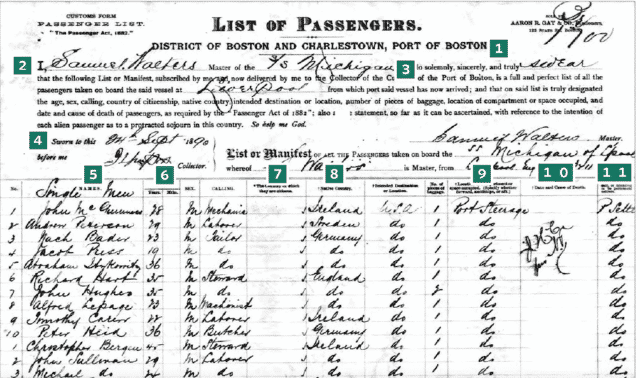 CUSTOMS FORM
PASSENGER LIST.
"The Passenger Act, 1882."
LIST OF PASSENGERS.
AARON R. GAY & CO.
DISTRICT OF BOSTON AND CHARLESTOWN, PORT OF BOSTON 1
2 I, Samuel Walters Master of the S/S Michigan 3 do solemnly, sincerely, and truly swear
that the following List or Manifest, subscribed by me and now delivered by me to the Collector of the of the Port of Boston, is a full and perfect list of all the
passengers taken on board the said vessel at Liverpool from which port said vessel has now arrived; and that on said list is truly designated
the age, sex, calling, country of citizenship, native country, intended destination or location, number of pieces of baggage, location of compartment or space occupied, and
date and cause of death of passengers, as required by the "Passenger Act of 1882"; also a statement, so far as it can be ascertained, with reference to the intention of
each alien passenger as to a protracted sojourn in this country. So help me God.
4 Sworn to this 24th Sept 1890
Samuel Walters Master.
before me Collector.
List or Manifest OF ALL THE PASSENGERS taken on board the SS Michigan of
whereof Walters is Master, from Liverpool
5 6 7 8 9 10 11
No. NAMES. Years. Mths. SEX. CALLING. The country of which they are citizens. Native Country. Intended Destination or Location. Date and Cause of Death.
Single Men
1 John 28 M Mechanic Ireland U.S.A 1 Port Steerage
2 Andrew 29 M Laborer Sweden do 1 do
3 Bader 23 M Tailor Germany do 1 do
4 Jacob 19 M do do do 1 do
5 Abraham 36 M do do do 1 do
6 Richard Hart 35 M Steward England do 1 do
7 John Hughes 35 M do do do 2 do
8 Alfred Lepage 23 M Machinist do do 1 do
9 Timothy 22 M Laborer do do 1 do
10 Peter Heid 36 M Butcher Germany do 1 do
1 Christopher 45 M Steward Ireland do 1 do
2 John Sullivan 29 M Laborer do do 1 do
3 Michael do 22 M do do do 1 do